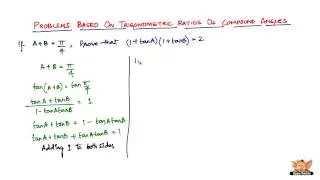 PROBLEMS BASED ON TRIGONOMETRIC RATIOS OF COMPOUND ANGLES
If A+B = π/4 , Prove that (1+tanA)(1+tanB) = 2
A+B = π/4
tan(A+B) = tan π/4
(tanA + tanB)/(1 - tanA tanB) = 1
tanA + tanB = 1 - tanA tanB
tanA + tanB + tanA tanB = 1
Adding 1 to both sides
1+